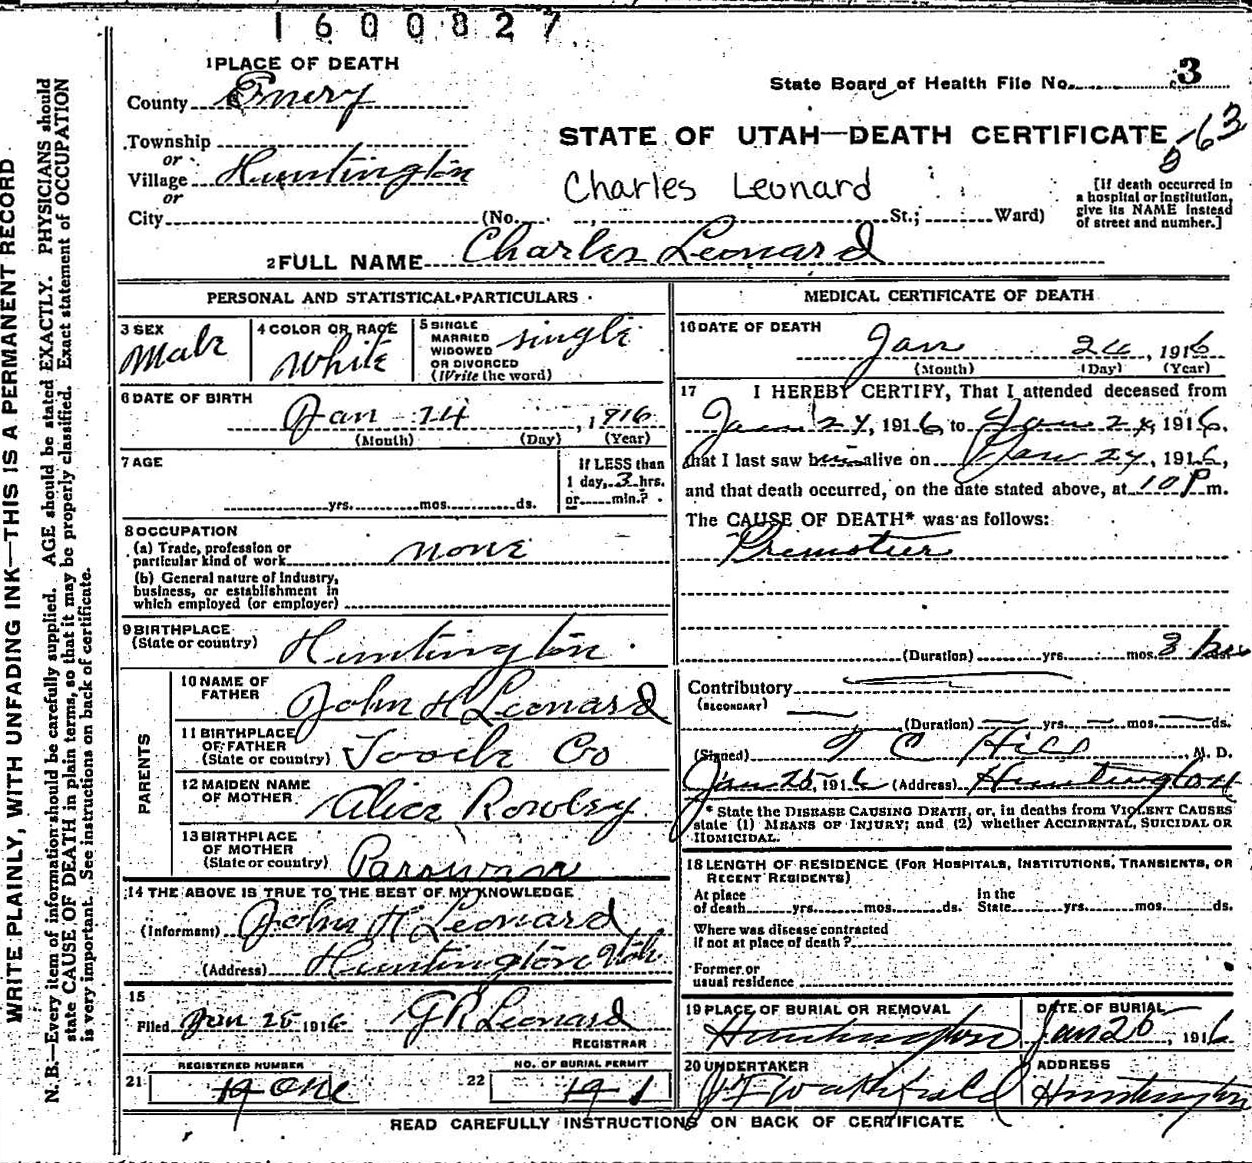 1600827
1 PLACE OF DEATH
State Board of Health File No. 3
County Emery
STATE OF UTAH—DEATH CERTIFICATE
63
Township
or
Village Huntington
or
Charles Leonard
[If death occurred in a hospital or institution, give its NAME instead of street and number.]
City (No. , St.; Ward)
2 FULL NAME Charles Leonard
PERSONAL AND STATISTICAL PARTICULARS
3 SEX
Male
4 COLOR OR RACE
White
5 SINGLE MARRIED WIDOWED OR DIVORCED (Write the word)
single
6 DATE OF BIRTH
Jan 24, 1916
(Month) (Day) (Year)
7 AGE
yrs. mos. ds.
If LESS than
1 day, 3 hrs.
or min.?
8 OCCUPATION
(a) Trade, profession or
particular kind of work none
(b) General nature of industry,
business, or establishment in
which employed (or employer)
9 BIRTHPLACE
(State or country) Huntington
PARENTS
10 NAME OF
FATHER John H Leonard
11 BIRTHPLACE
OF FATHER
(State or country) Tooele Co
12 MAIDEN NAME
OF MOTHER Alice Rowley
13 BIRTHPLACE
OF MOTHER
(State or country) Parowan
14 THE ABOVE IS TRUE TO THE BEST OF MY KNOWLEDGE
(Informant) John H Leonard
(Address) Huntington Utah
15
Filed Jan 25 1916 G R Leonard
REGISTRAR
REGISTERED NUMBER
21 One
NO. OF BURIAL PERMIT
22 1
MEDICAL CERTIFICATE OF DEATH
16 DATE OF DEATH
Jan 24, 1916
(Month) (Day) (Year)
17 I HEREBY CERTIFY, That I attended deceased from
Jan 24, 1916 to Jan 24, 1916,
that I last saw him alive on Jan 24, 1916,
and that death occurred, on the date stated above, at 10 P m.
The CAUSE OF DEATH* was as follows:
(Duration) yrs. mos. 3 hrs ds.
Contributory
(SECONDARY)
(Duration) — yrs. — mos. — ds.
(Signed) T C Hill, M. D.
Jan 25, 1916 (Address) Huntington
* State the DISEASE CAUSING DEATH, or, in deaths from VIOLENT CAUSES
state (1) MEANS OF INJURY; and (2) whether ACCIDENTAL, SUICIDAL OR
HOMICIDAL.
18 LENGTH OF RESIDENCE (FOR HOSPITALS, INSTITUTIONS, TRANSIENTS, OR
RECENT RESIDENTS)
At place
of death yrs. mos. ds.
In the
State yrs. mos. ds.
Where was disease contracted
if not at place of death?
Former or
usual residence
19 PLACE OF BURIAL OR REMOVAL
Huntington
DATE OF BURIAL
Jan 25, 1916
20 UNDERTAKER
ADDRESS
Huntington
READ CAREFULLY INSTRUCTIONS ON BACK OF CERTIFICATE
WRITE PLAINLY, WITH UNFADING INK—THIS IS A PERMANENT RECORD
N. B.—Every item of information should be carefully supplied. AGE should be stated EXACTLY. PHYSICIANS should
state CAUSE OF DEATH in plain terms, so that it may be properly classified. Exact statement of OCCUPATION
is very important. See instructions on back of certificate.